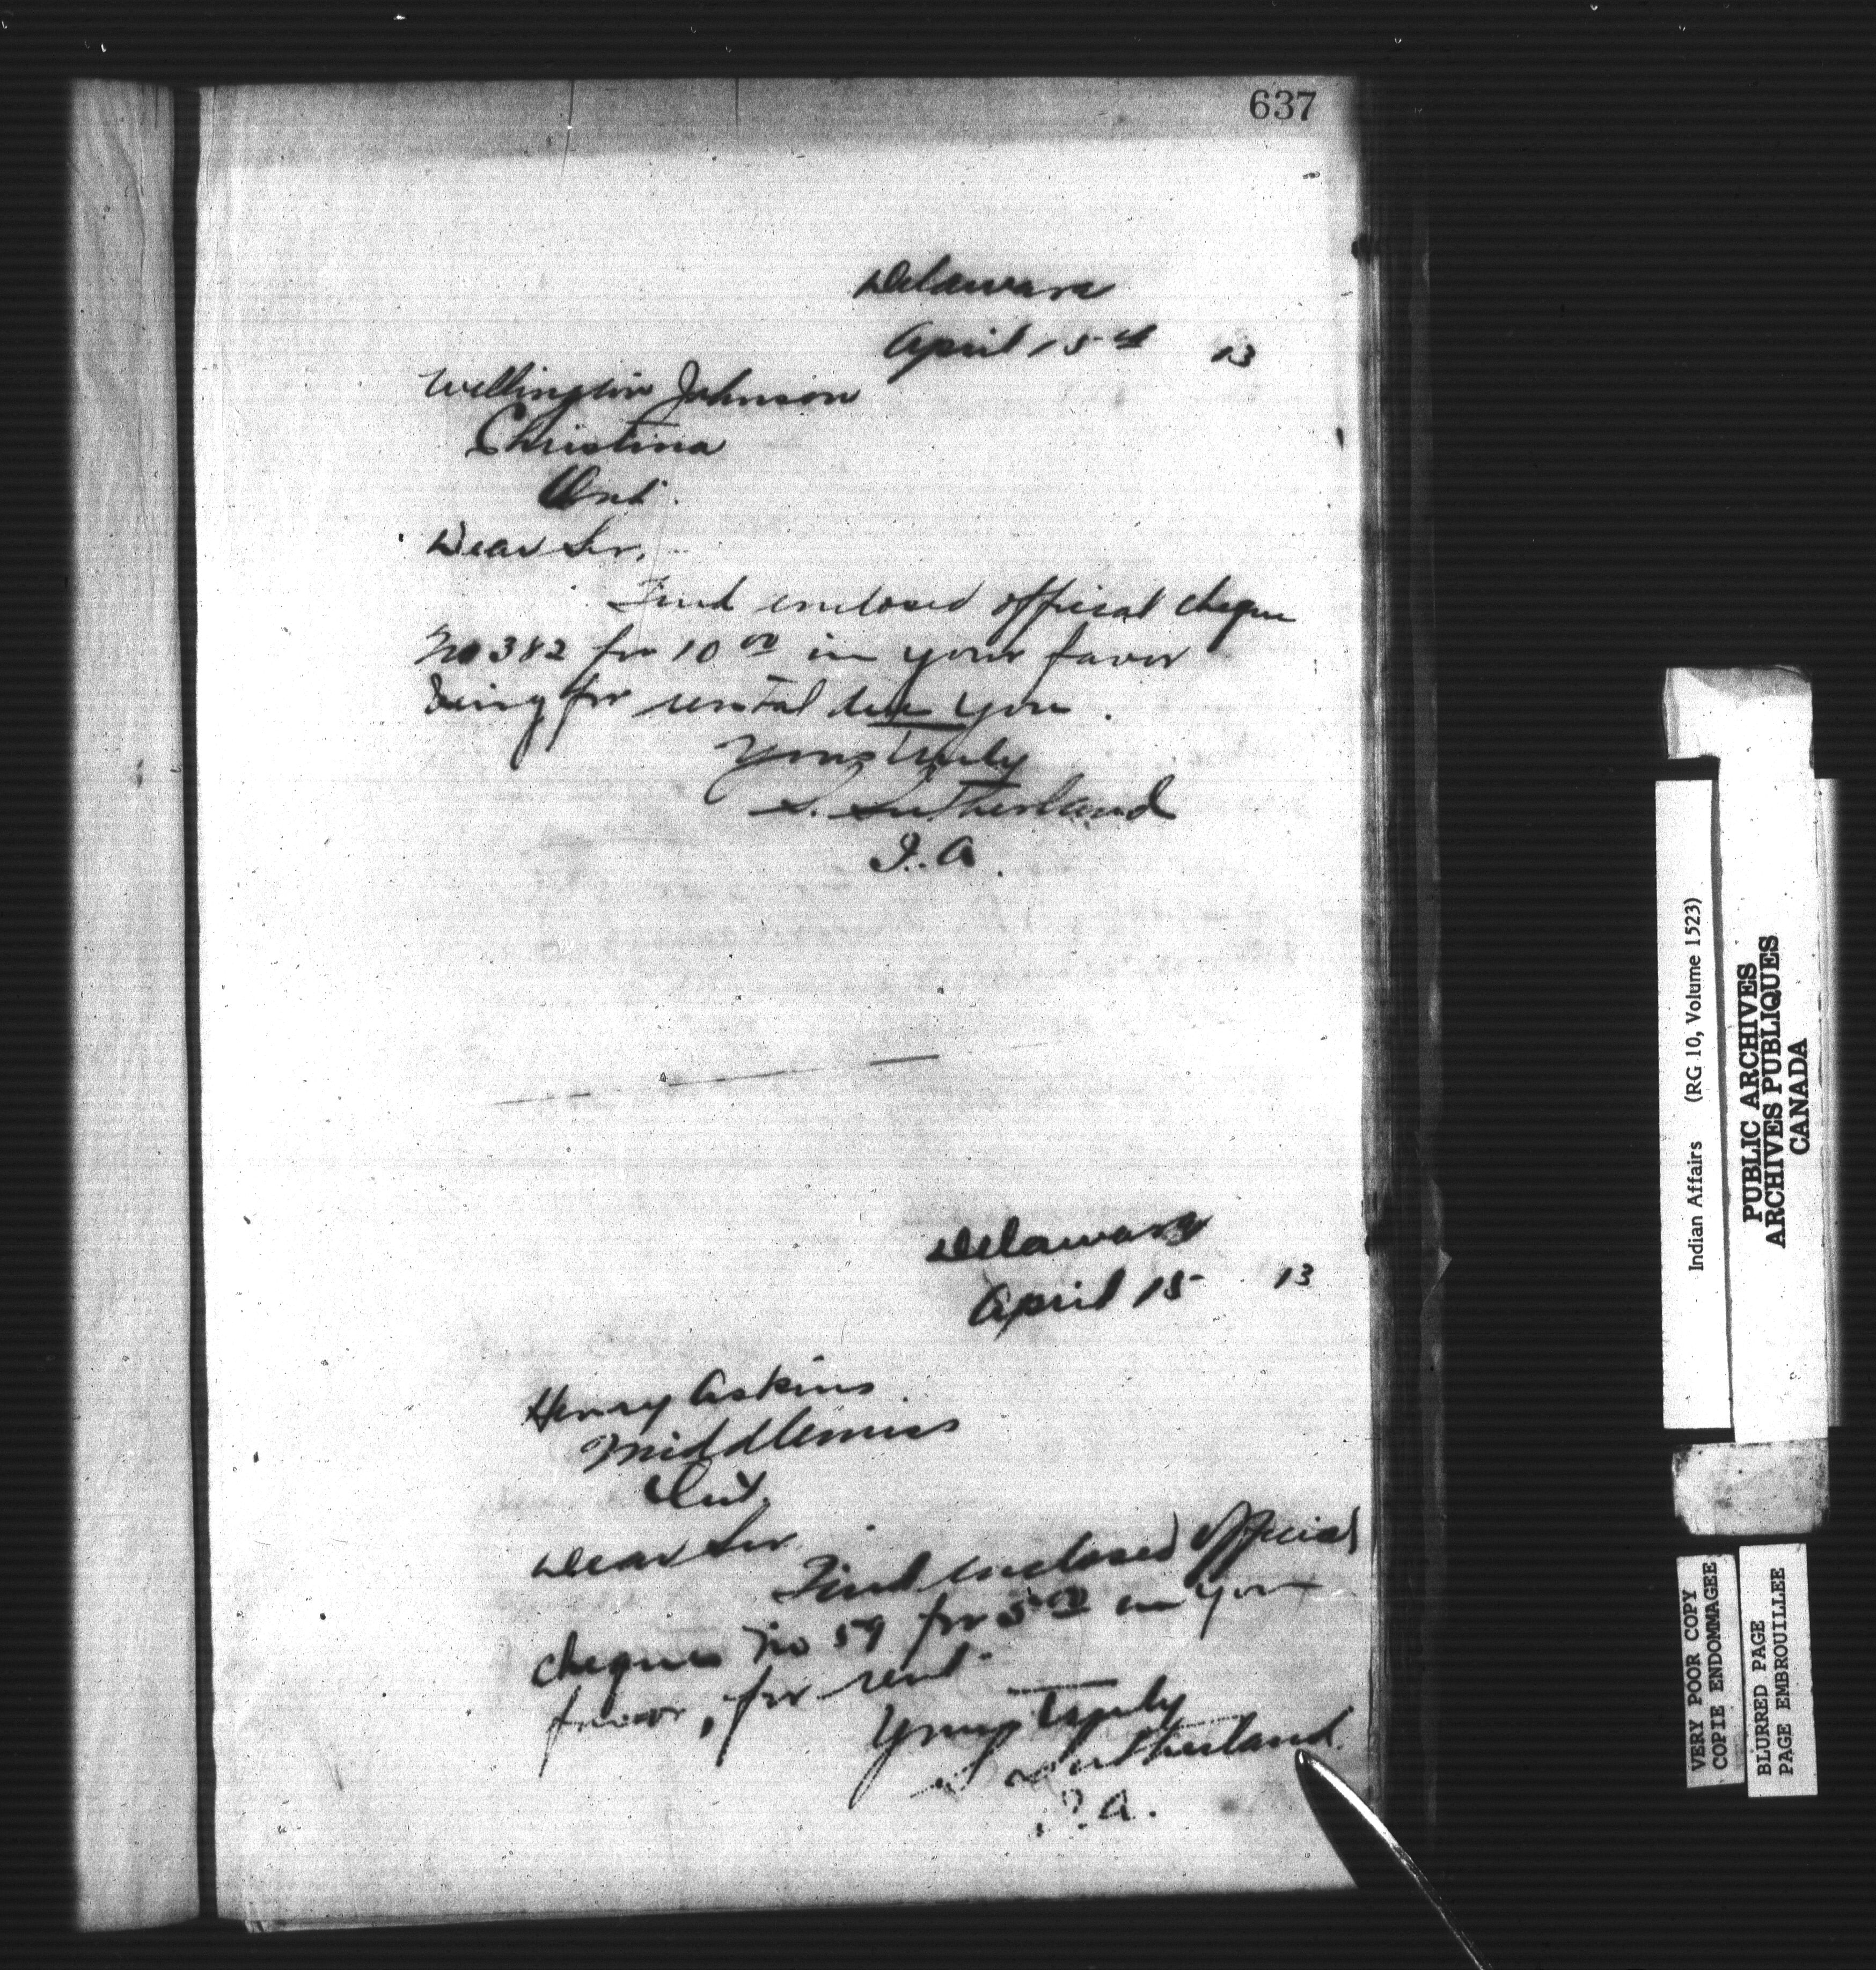 637
Delaware
April 15th 13
Wellington Johnson
Christina
Ont.
Dear Sir,
Find enclosed official cheque
No 382 for 10 00 in your favor
being for rental due you.
Yours truly
S. Sutherland
I. A.
Delaware
April 15 13
Henry Askins
Middlemiss
Ont.
Dear Sir
Find enclosed official
cheque No 59 for 5 00 in your
favor, for rent.
Yours truly
S Sutherland.
I. A.
Indian Affairs (RG 10, Volume 1523)
PUBLIC ARCHIVES
ARCHIVES PUBLIQUES
CANADA
VERY POOR COPY
COPIE ENDOMMAGEE
BLURRED PAGE
PAGE EMBROUILLEE